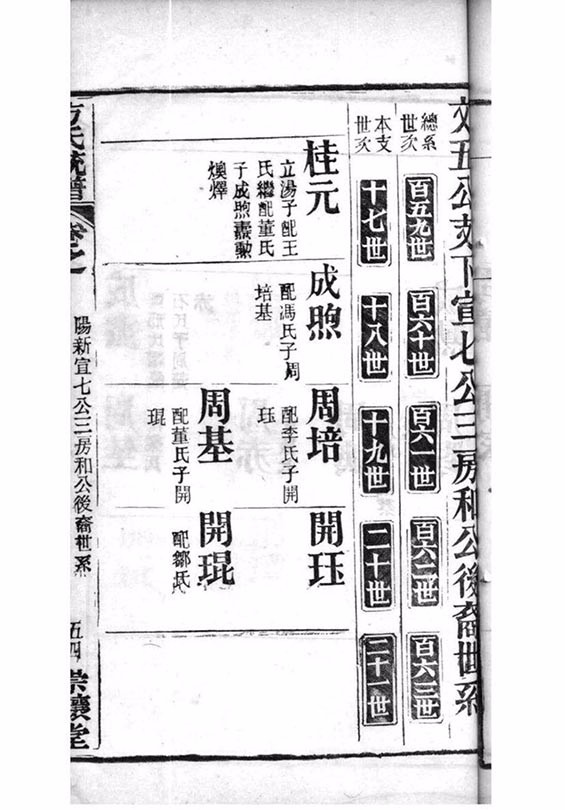 文五公支下宣七公三房和公後裔世系
總系世次
百五九世
百六十世
百六一世
百六二世
百六三世
本支世次
十七世
十八世
十九世
二十世
二十一世
桂元
立湯子配王
氏繼配董氏
子成煦燾勲
燠燡
成煦
配馮氏子周
培基
周培
配李氏子開
珏
開珏
周基
配董氏子開
琨
開琨
配鄒氏
方氏統譜
卷之一
陽新宣七公三房和公後裔世系
五四
崇讓堂